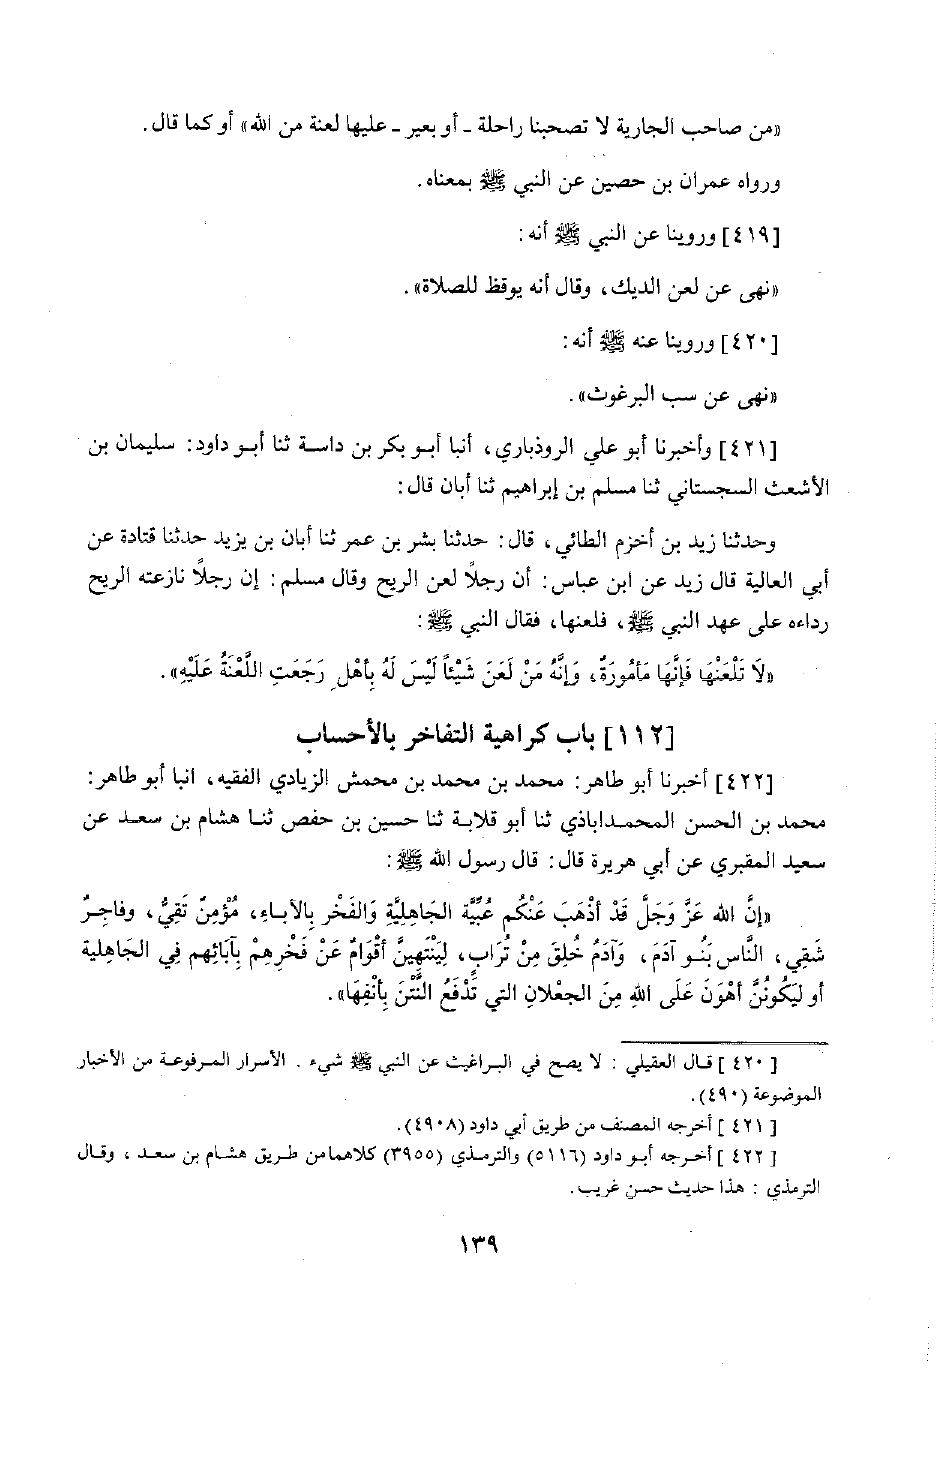 «من صاحب الجارية لا تصحبنا راحلة ـ أو بعير ـ عليها لعنة من الله» أو كما قال.
ورواه عمران بن حصين عن النبي ﷺ بمعناه.
[٤١٩] وروينا عن النبي ﷺ أنه:
«نهى عن لعن الديك، وقال أنه يوقظ للصلاة».
[٤٢٠] وروينا عنه ﷺ أنه:
«نهى عن سب البرغوث».
[٤٢١] وأخبرنا أبو علي الروذباري، أنبا أبو بكر بن داسة ثنا أبو داود: سليمان بن
الأشعث السجستاني ثنا مسلم بن إبراهيم ثنا أبان قال:
وحدثنا زيد بن أخزم الطائي، قال: حدثنا بشر بن عمر ثنا أبان بن يزيد حدثنا قتادة عن
أبي العالية قال زيد عن ابن عباس: أن رجلاً لعن الريح وقال مسلم: إن رجلاً نازعته الريح
رداءه على عهد النبي ﷺ، فلعنها، فقال النبي ﷺ:
«لَا تَلْعَنْهَا فَإِنَّهَا مَأمُورَةٌ، وَإِنَّهُ مَنْ لَعَنَ شَيْئاً لَيْسَ لَهُ بِأَهْلٍ رَجَعَتِ اللَّعْنَةُ عَلَيْهِ».
[١١٢] باب كراهية التفاخر بالأحساب
[٤٢٢] أخبرنا أبو طاهر: محمد بن محمد بن محمش الزيادي الفقيه، انبا أبو طاهر:
محمد بن الحسن المحمداباذي ثنا أبو قلابة ثنا حسين بن حفص ثنا هشام بن سعد عن
سعيد المقبري عن أبي هريرة قال: قال رسول الله ﷺ:
«إنَّ الله عَزَّ وَجَلَّ قَدْ أذْهَبَ عَنْكُم عُبِّيَّةَ الجَاهِلِيَّةِ وَالفَخْر بِالآباءِ، مُؤْمِنٌ تَقِيٌّ، وفاجِرٌ
شَقِي، النَّاس بَنُو آدَمَ، وَآدَمُ خُلِقَ مِنْ تُرَابٍ، لِيَنْتَهِينَّ أقْوَامٌ عَنْ فَخْرِهِمْ بِآبَائِهِم فِي الجَاهلية
أو لَيَكُونُنَّ أهْوَنَ عَلَى اللهِ مِنَ الجعْلان التي تَدْفَعُ النَّتْنَ بِأنْفِهَا».
[٤٢٠] قال العقيلي: لا يصح في البراغيث عن النبي ﷺ شيء. الأسرار المرفوعة من الأخبار
الموضوعة (٤٩٠).
[٤٢١] أخرجه المصنف من طريق أبي داود (٤٩٠٨).
[٤٢٢] أخرجه أبو داود (٥١١٦) والترمذي (٣٩٥٥) كلاهما من طريق هشام بن سعد، وقال
الترمذي: هذا حديث حسن غريب.
١٣٩